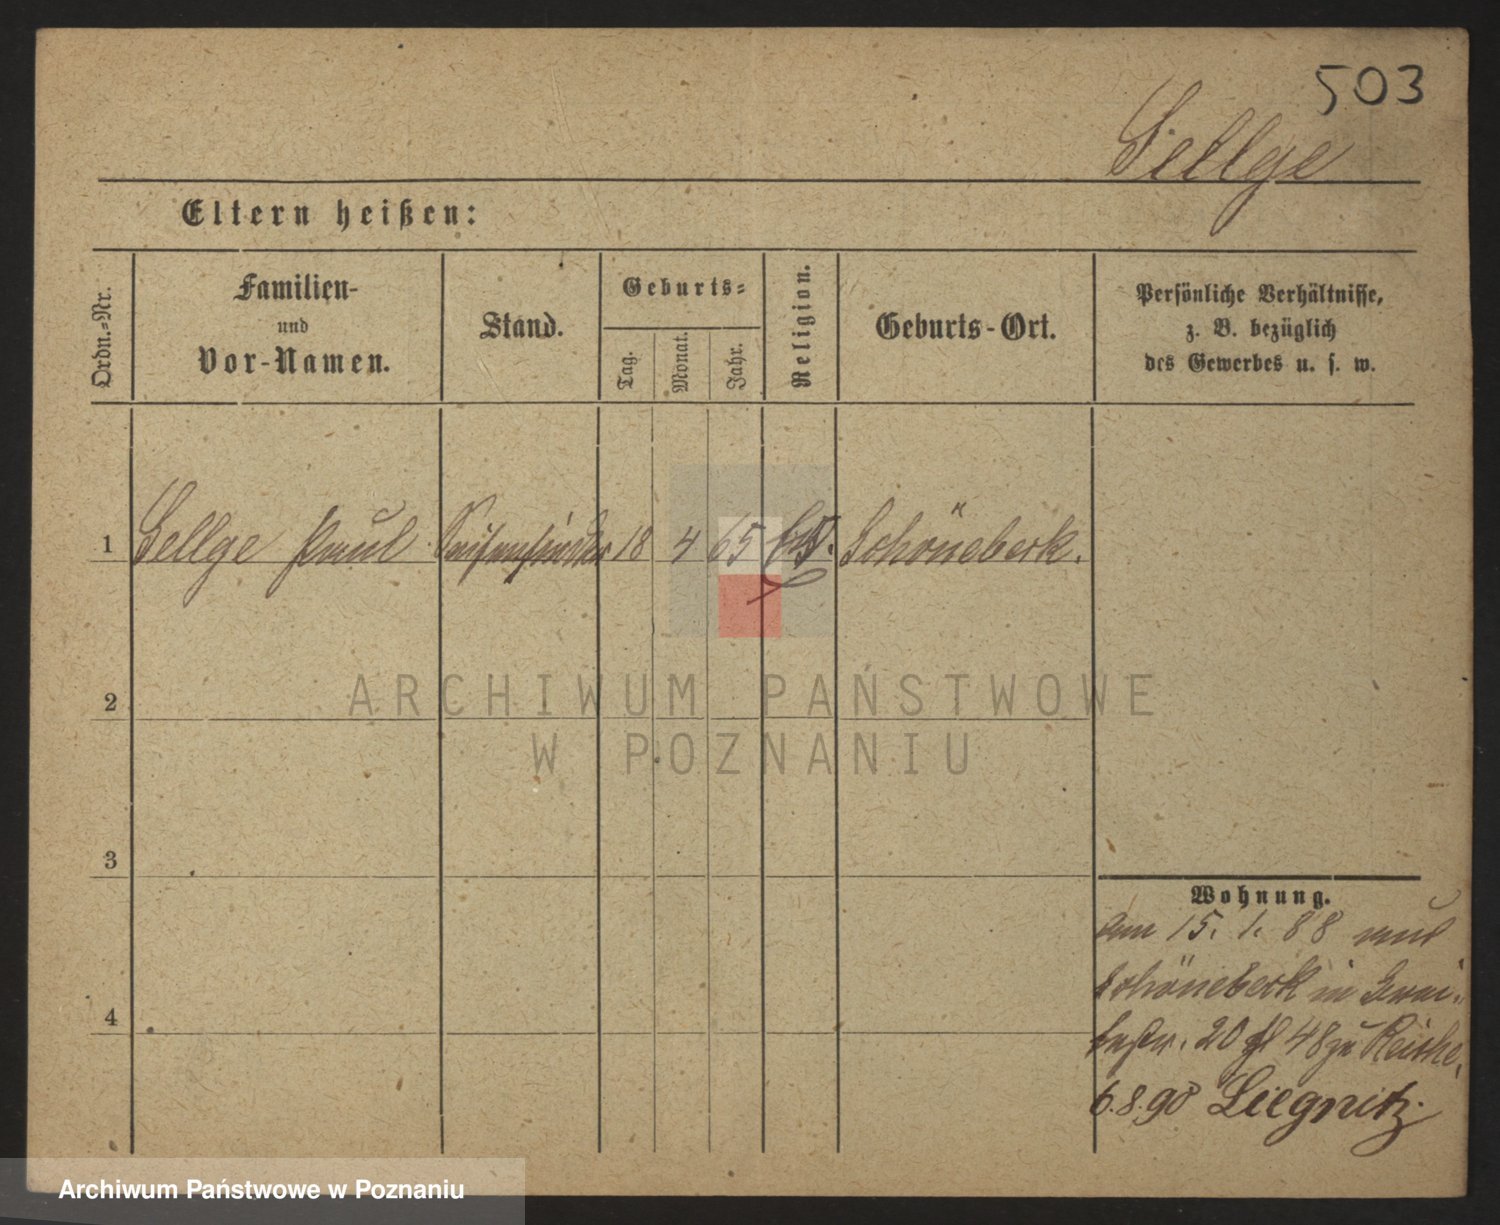 503
Sellge
Eltern heißen:
Ordn.-Nr.
Familien-
und
Vor-Namen.
Stand.
Geburts-
Tag.
Monat.
Jahr.
Religion.
Geburts-Ort.
Persönliche Verhältnisse,
z. B. bezüglich
des Gewerbes u. s. w.
1 Sellge Paul Seifensieder 18 4 65 Schönebeck.
2
3
4
Wohnung.
am 15. 1. 88 aus
Schönebeck in
20 48 zu
6.8.90 Liegnitz.
ARCHIWUM PAŃSTWOWE
W POZNANIU
Archiwum Państwowe w Poznaniu